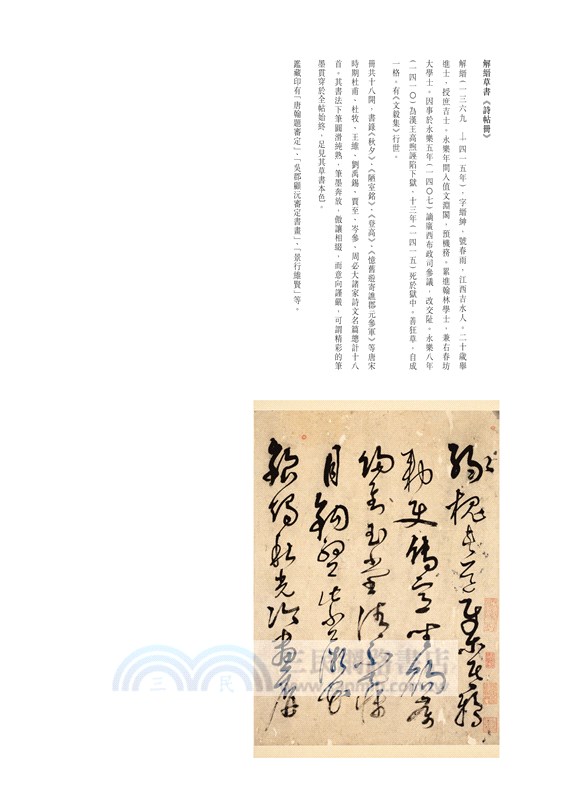 解縉草書《詩帖冊》
解縉(一三六九—一四一五年)，字縉紳，號春雨，江西吉水人。二十歲舉
進士，授庶吉士。永樂年間入值文淵閣，預機務。累進翰林學士，兼右春坊
大學士。因事於永樂五年(一四〇七)謫廣西布政司參議，改交阯。永樂八年
(一四一〇)為漢王高煦誣陷下獄，十三年(一四一五)死於獄中。善狂草，自成
一格，有《文毅集》行世。
冊共十八開，書錄《秋夕》、《陋室銘》、《登高》、《憶舊遊寄譙郡元參軍》等唐宋
時期杜甫、杜牧、王維、劉禹錫、賈至、岑參、周必大諸家詩文名篇總計十八
首。其書法下筆圓滑純熟，筆墨奔放，傲讓相綴，而意向謹嚴，可謂精彩的筆
墨貫穿於全帖始終，足見其草書本色。
鑑藏印有「唐翰題審定」、「吳郡顧沅審定書畫」、「景行維賢」等。
綠槐
勅使傳宣坐賜
歸到玉堂清不寐
月鉤初上紫薇花
銀燭秋光冷畫屏
三民網路書店
三民